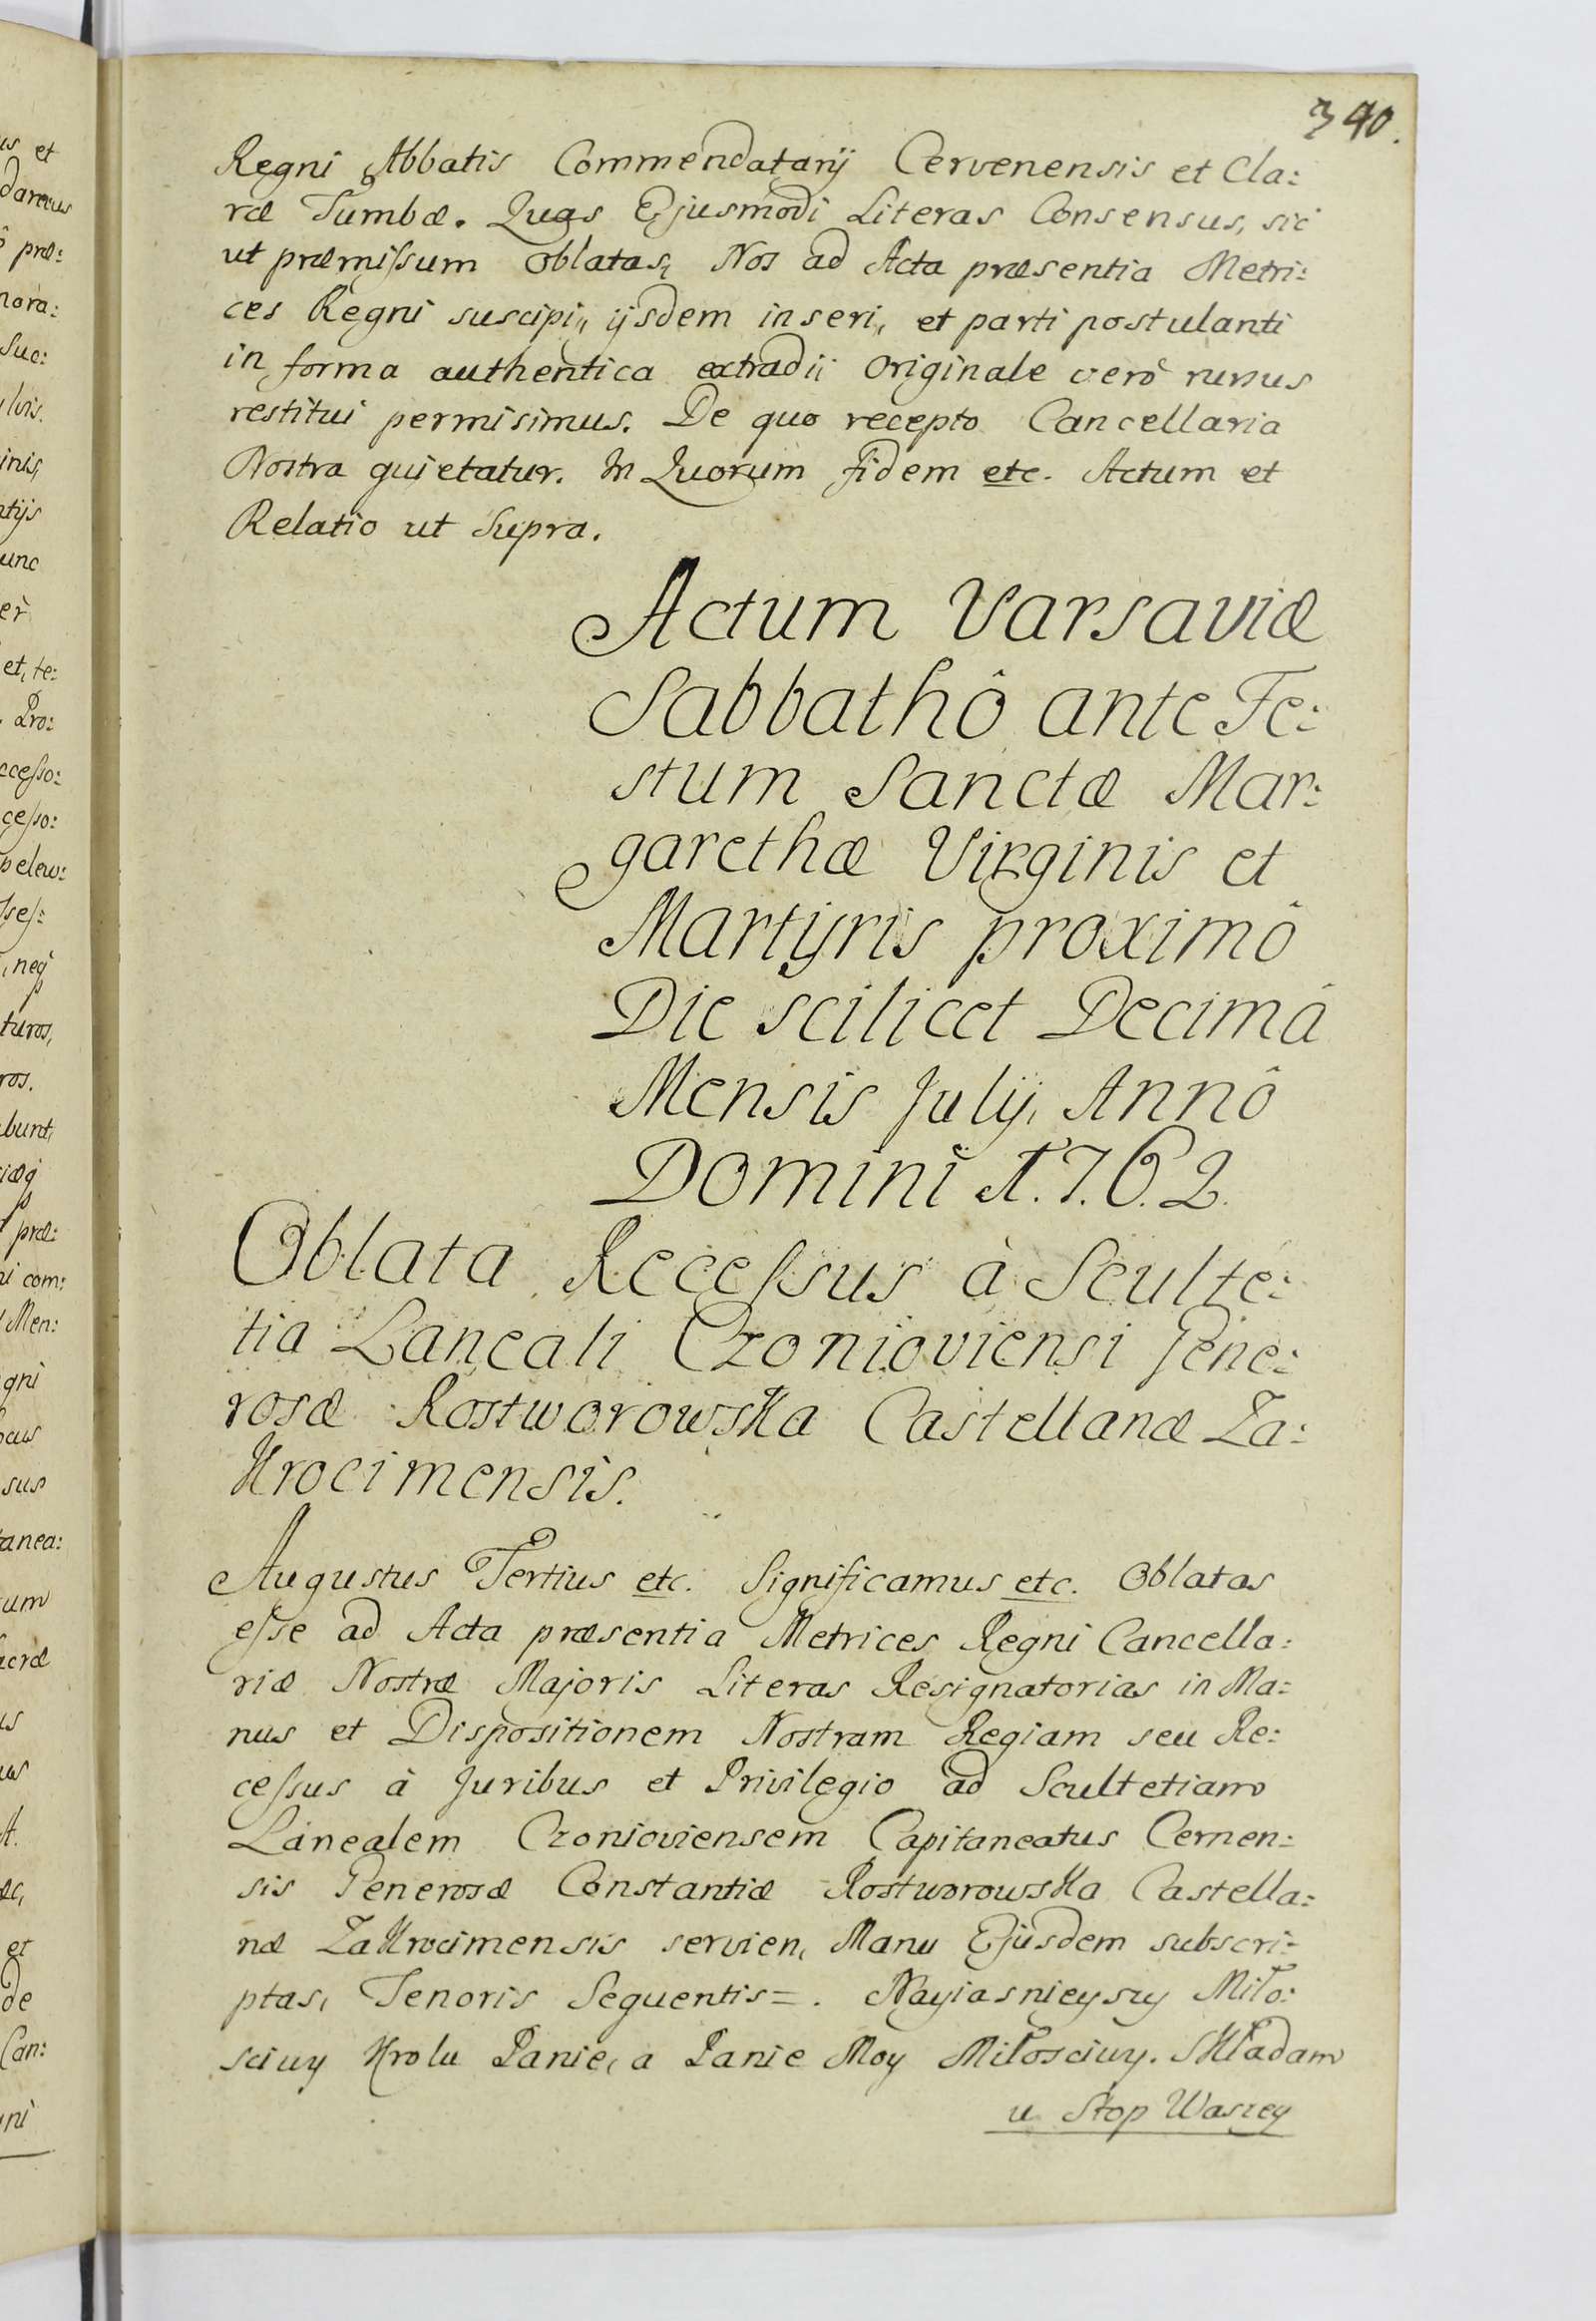 340.
Regni Abbatis Commendatarij Cervenensis et Cla:
ræ Tumbæ. Quas Ejusmodi Literas Consensus, sic
ut præmissum oblatas, Nos ad Acta præsentia Metri:
ces Regni suscipi, ijsdem inseri, et parti postulanti
in forma authentica extradi, Originale verò rursus
restitui permisimus. De quo recepto Cancellaria
Nostra quietatur. In Quorum fidem etc. Actum et
Relatio ut Supra.
Actum Varsaviæ
Sabbathô ante Fe:
stum Sanctæ Mar:
garethæ Virginis et
Martyris proximô
Die scilicet Decimâ
Mensis Julij, Annô
Domini 1.7.6.2.
Oblata Recessus à Sculte:
tia Laneali Czonioviensi Gene:
rosæ Rostworowska Castellanæ Za:
krocimensis.
Augustus Tertius etc. Significamus etc. Oblatas
esse ad Acta præsentia Metrices Regni Cancella:
riæ Nostræ Majoris Literas Resignatorias in Ma:
nus et Dispositionem Nostram Regiam seu Re:
cessus à Juribus et Privilegio ad Scultetiam
Lanealem Czonioviensem Capitaneatus Cernen:
sis Generosæ Constantiæ Rostworowska Castella:
næ Zakrocimensis servien, Manu Ejusdem subscri:
ptas, Tenoris Sequentis=. Nayiasnieyszy Miło:
sciwy Krolu Panie, a Panie Moy Miłosciwy. Składam
u Stop Waszey